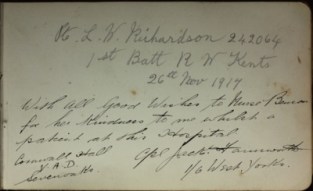 Pte L. V. Richardson 242064
1st Batt R W Kents
26th Nov 1917
With all Good Wishes to Nurse
for her Kindness to me whilst a
patient at this Hospital
Cornwall Hall
V.A.D
Sevenoaks.
Cpl Jack
1/6 West Yorks.